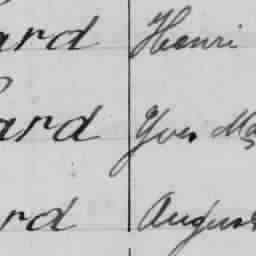 ard Henri
ard Yves Ma
rd August